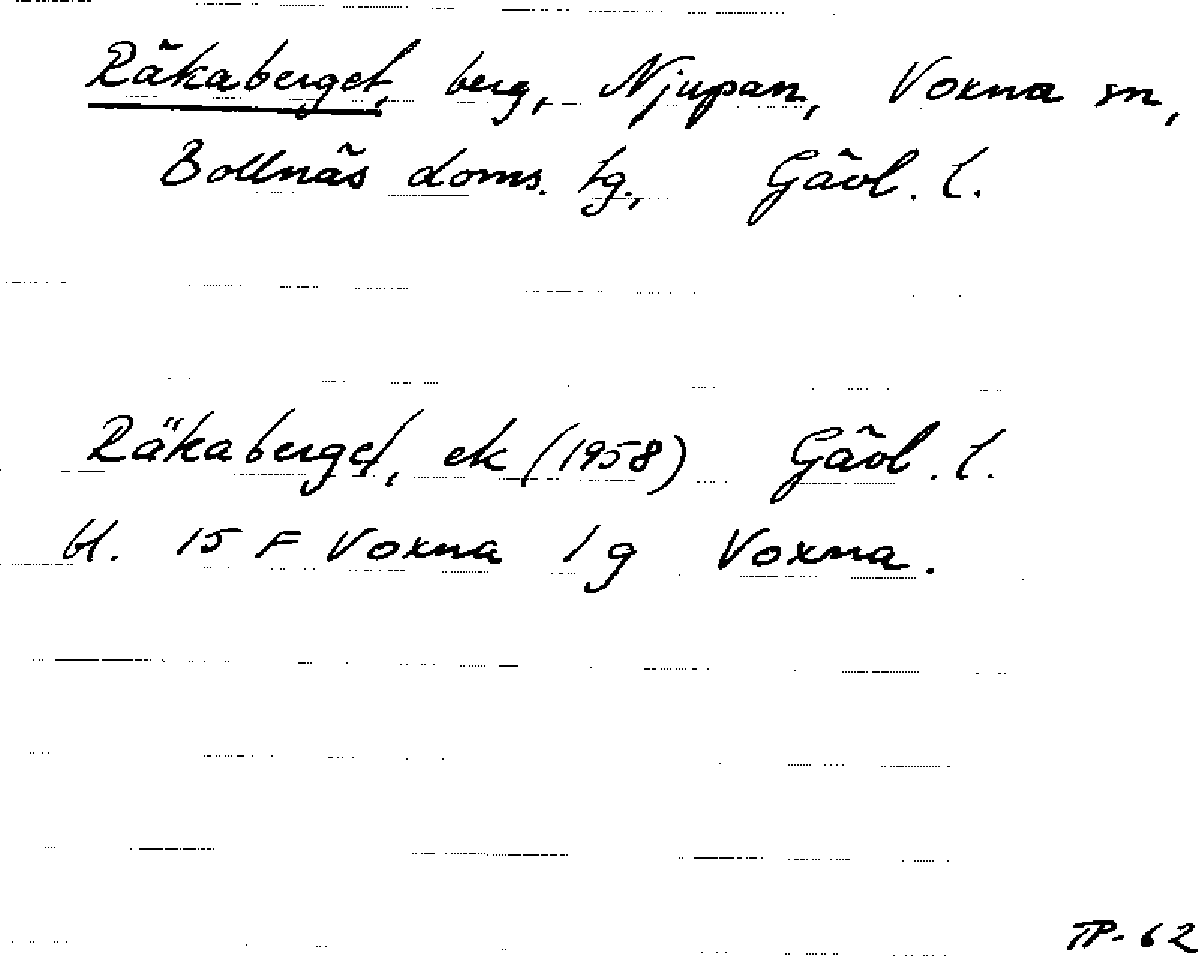 Räkaberget, berg, Njupan, Voxna sn,
Bollnäs doms. tg., Gävl. l.
Räkaberget, ek (1958) Gävl. l.
bl. 15 F Voxna 1 g Voxna.
TP-62